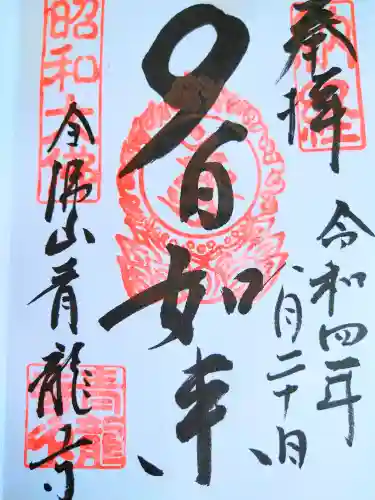 奉拝
令和四年
八月二十日
大日如来
昭和大佛
全佛山青龍寺
青龍